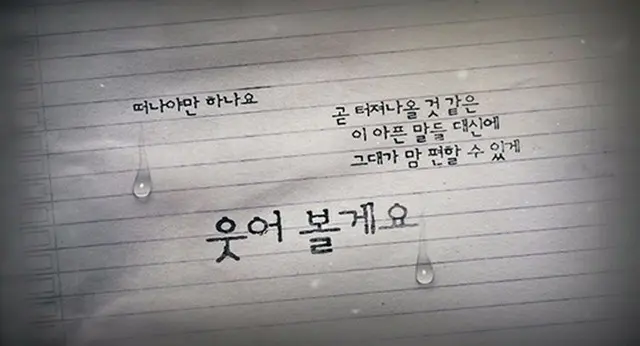 떠나야만 하나요
곧 터져나올 것 같은
이 아픈 말들 대신에
그대가 맘 편할 수 있게
웃어 볼게요